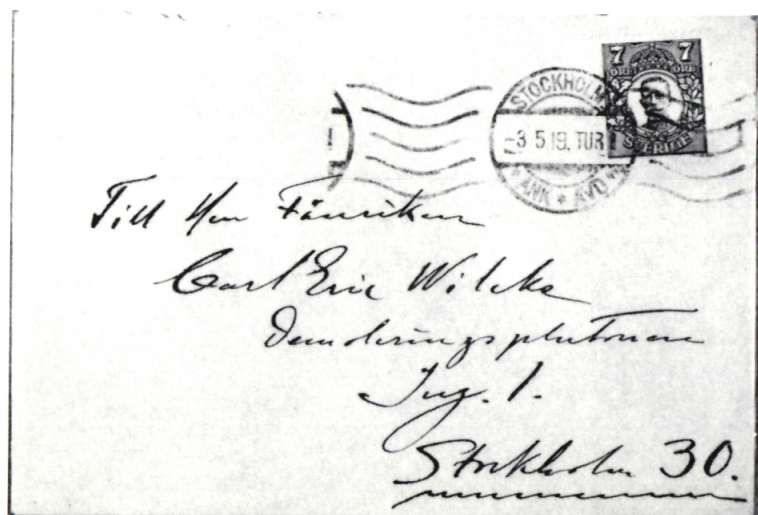 7 7
ÖRE ÖRE
SVERIGE
STOCKHOLM
-3.5.19. TUR
ANK * AVD
Till Herr Fänriken
Carl Eric Wilcke
Demoleringsplutonen
Ing. 1.
Stockholm 30.